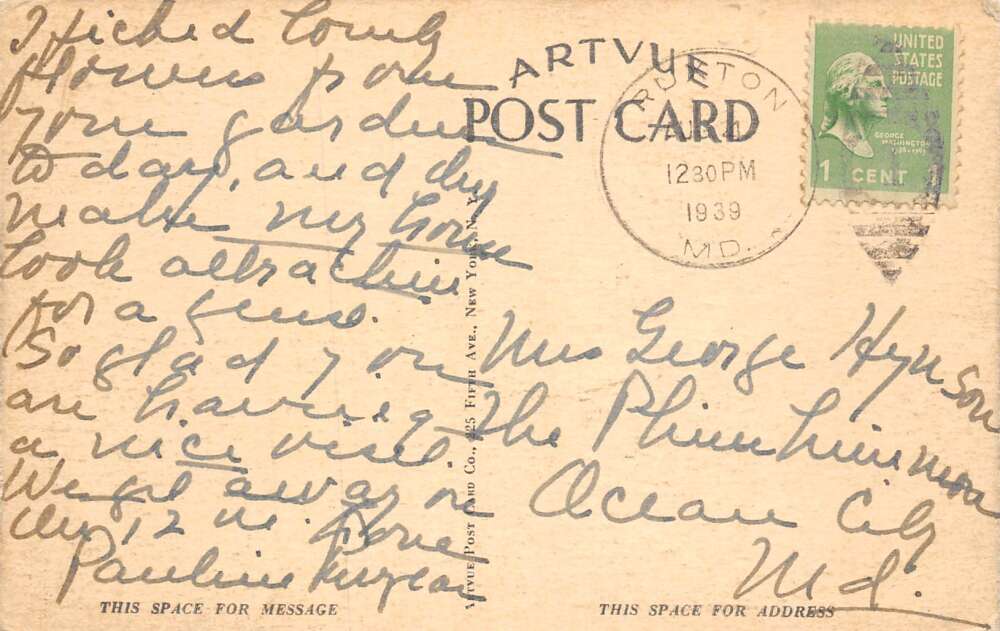 I Picked lovely
flowers from
your garden
to day, and they
make my house
look attractive
for a
So glad you
are having
a nice visit.
We get away on
Au, 12 Love
Pauline
ARTVUE
POST CARD
RUXTON
12 30 PM
1939
MD.
UNITED
STATES
POSTAGE
GEORGE
WASHINGTON
1 CENT 1
ARTVUE POST CARD CO., 225 FIFTH AVE., NEW YORK, N. Y.
Mrs George Hynson
The Plimhimmon
Ocean City
Md.
THIS SPACE FOR MESSAGE
THIS SPACE FOR ADDRESS